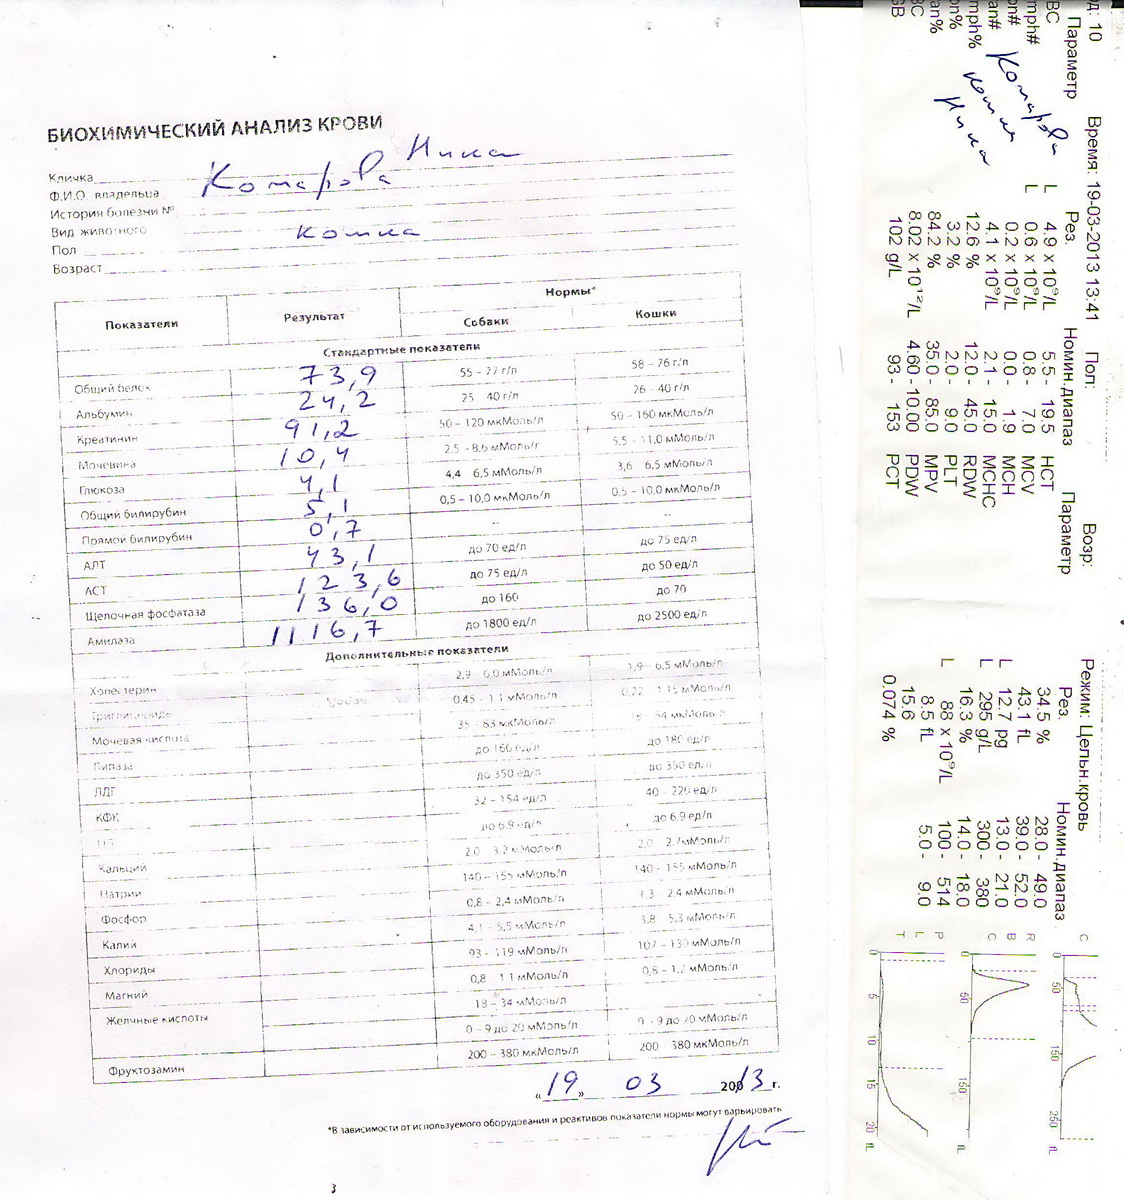 БИОХИМИЧЕСКИЙ АНАЛИЗ КРОВИ
Кличка Ника
Ф.И.О. владельца Комарова
История болезни №
Вид животного кошка
Пол
Возраст
Показатели Результат Нормы*
Собаки Кошки
Стандартные показатели
Общий белок 73,9 55 - 77 г/л 58 - 76 г/л
Альбумин 24,2 25 40 г/л 26 - 40 г/л
Креатинин 91,2 50 - 120 мкМоль/л 50 - 160 мкМоль/л
Мочевина 10,4 2,5 - 8,6 мМоль/г 5,5 - 11,0 мМоль/л
Глюкоза 4,1 4,4 6,5 мМоль/л 3,6 6,5 мМоль/л
Общий билирубин 5,1 0,5 - 10,0 мкМоль/л 0,5 - 10,0 мкМоль/л
Прямой билирубин 0,7 -- --
АЛТ 43,1 до 70 ед/л до 75 ед/л
АСТ 123,6 до 75 ед/л до 50 ед/л
Щелочная фосфатаза 136,0 до 160 до 70
Амилаза 1116,7 до 1800 ед/л до 2500 ед/л
Дополнительные показатели
Холестерин 2,9 6,0 мМоль/л 1,9 - 6,5 мМоль/л
Триглицериды 0,45 - 1,1 мМоль/л
Мочевая кислота 35 - 83 мкМоль/л
Липаза до 160 ед/л до 180 ед/л
ЛДГ до 350 ед/л до 350 ед/л
КФК 32 - 154 ед/л 40 - 220 ед/л
до 6.9 ед/л до 6.9 ед/л
Кальций 2,0 3,2 мМоль/л 2,0 2,7мМоль/л
Натрий 140 - 155 мМоль/л 140 - 155 мМоль/л
Фосфор 0,8 - 2,4 мМоль/л 1,3 2,4 мМоль/л
Калий 4,1 5,5 мМоль/л 3,8 5,3 мМоль/л
Хлориды 93 - 119 мМоль/л 107 - 130 мМоль/л
Магний 0,8 1,1 мМоль/л 0,8 - 1,2 мМоль/л
Желчные кислоты 18 - 34 мМоль/л
0 - 9 до 20 мМоль/л 0 - 9 до 20 мМоль/л
Фруктозамин 200 - 380 мкМоль/л 200 380 мкМоль/л
«19» 03 2013 г.
*В зависимости от используемого оборудования и реактивов показатели нормы могут варьировать
3
д: 10 Время: 19-03-2013 13:41 Пол: Возр: Режим: Цельн.кровь
Параметр Рез. Номин.диапаз Параметр Рез. Номин.диапаз
BC L 4.9 x 10⁹/L 5.5 - 19.5 HCT 34.5 % 28.0 - 49.0
mph# L 0.6 x 10⁹/L 0.8 - 7.0 MCV 43.1 fL 39.0 - 52.0
on# 0.2 x 10⁹/L 0.0 - 1.9 MCH L 12.7 pg 13.0 - 21.0
an# 4.1 x 10⁹/L 2.1 - 15.0 MCHC L 295 g/L 300 - 380
mph% 12.6 % 12.0 - 45.0 RDW 16.3 % 14.0 - 18.0
on% 3.2 % 2.0 - 9.0 PLT L 88 x 10⁹/L 100 - 514
an% 84.2 % 35.0 - 85.0 MPV 8.5 fL 5.0 - 9.0
BC 8.02 x 10¹²/L 4.60 - 10.00 PDW 15.6
GB 102 g/L 93 - 153 PCT 0.074 %
Комарова
кошка
Ника
C
0 50 150 250 fL
R
B
C
0 50 150 fL
P
L
T
0 5 10 15 20 fL